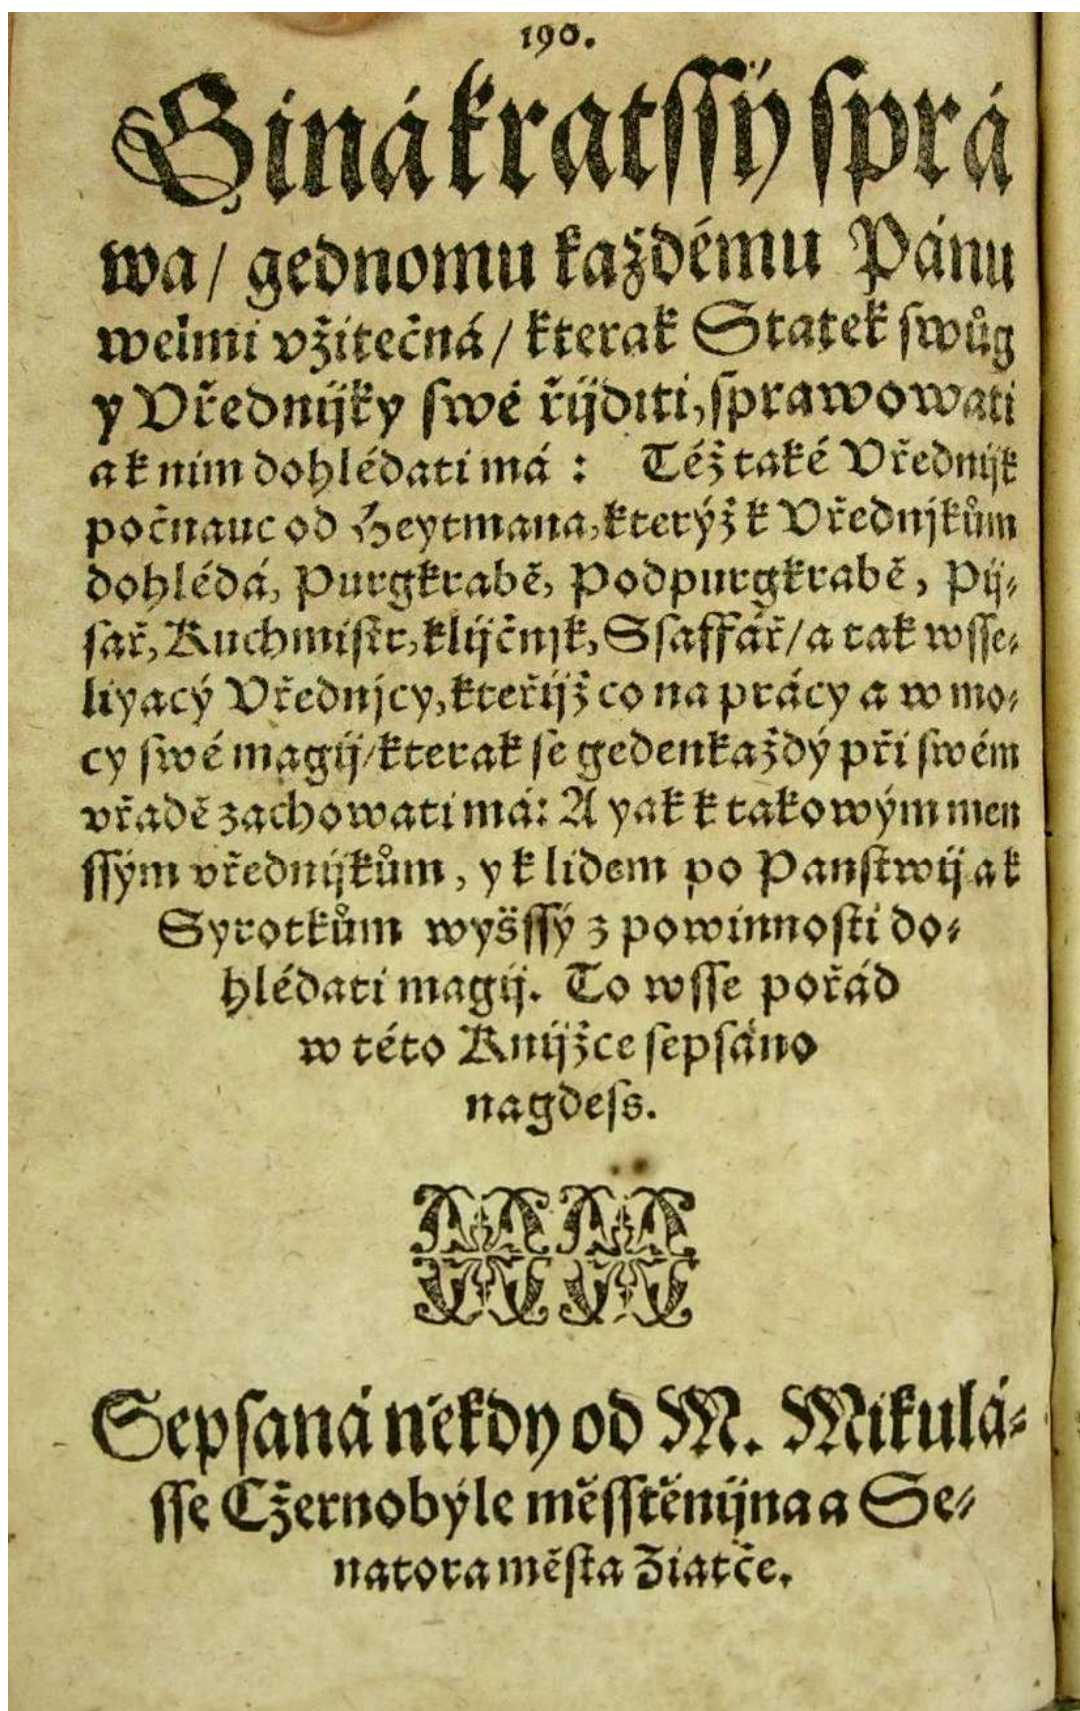 190.
Giná kratssý sprá
wa/ gednomu každému Pánu
welmi vžitečná/ kterak Statek swůg
y Vřednijky swé řijditi, sprawowati
a k nim dohlédati má: Též také Vřednijk
počnauc od Heytmana, kterýž k Vřednjkům
dohlédá, Purgkrabě, Podpurgkrabě, Pij⸗
sař, Kuchmistr, klijčnjk, Ssaffář/ a tak wsse⸗
liyacý Vřednjcy, kteřijž co na prácy a w mo⸗
cy swé magij/ kterak se gedenkaždý při swém
vřadě zachowati má: A yak k takowým men
ssým vřednijkům, y k lidem po Panstwij a k
Syrotkům wyšssý z powinnosti do⸗
hlédati magij. To wsse pořád
w této Knijžce sepsáno
nagdess.
Sepsaná někdy od M. Mikulá⸗
sse Cžernobýle měsstěnijna a Se⸗
natora města Žiatče.